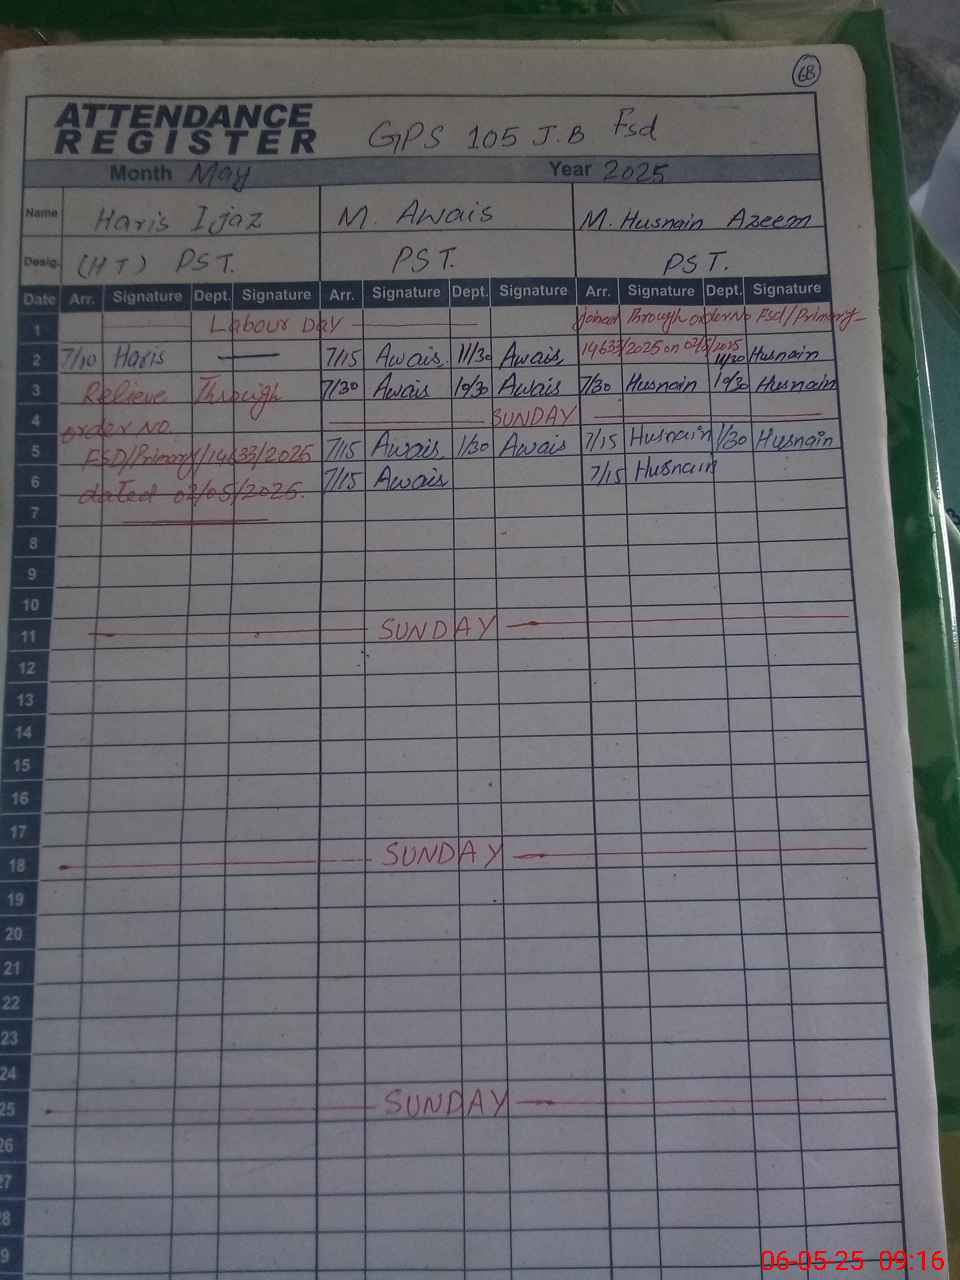 68
ATTENDANCE
REGISTER
GPS 105 J.B Fsd
Month May Year 2025
Name Haris Ijaz M. Awais M. Husnain Azeem
Desig. (HT) PST. PST. PST.
Date Arr. Signature Dept. Signature Arr. Signature Dept. Signature Arr. Signature Dept. Signature
1 Labour Day Joined Through order No Fsd/Primary
2 7/10 Haris 7/15 Awais 11/30 Awais 14633/2025 on 02/5/2025 11/30 Husnain
3 Relieve Through 7/30 Awais 10/30 Awais 7/30 Husnain 10/30 Husnain
4 order No. SUNDAY
5 FSD/Primary/14633/2025 7/15 Awais 1/30 Awais 7/15 Husnain 1/30 Husnain
6 dated 02/05/2025. 7/15 Awais 7/15 Husnain
7
8
9
10
11 SUNDAY
12
13
14
15
16
17
18 SUNDAY
19
20
21
22
23
24
25 SUNDAY
26
27
28
29
06-05-25 09:16